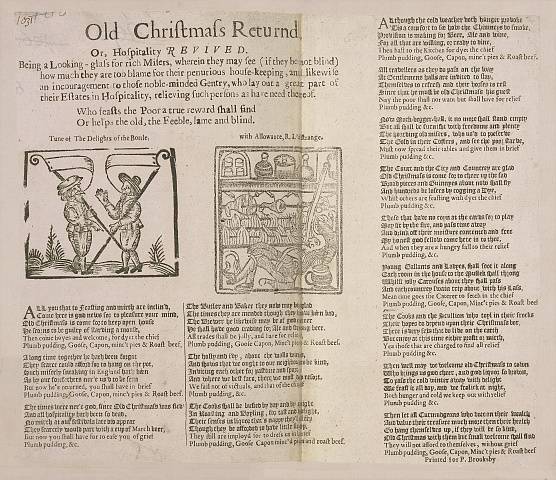 Old Christmass Returnd,
Or, Hospitality REVIVED.
Being a Looking-glass for rich Misers, wherein they may see (if they be not blind)
how much they are too blame for their penurious house-keeping, and likewise
an incouragement to those noble-minded Gentry, who lay out a great part of
their Estates in Hospitality, relieving such persons as have need thereof.
Who feasts the Poor a true reward shall find
Or helps the old, the Feeble, lame and blind.
Tune of The Delights of the Bottle.
with Allowance, R. L'estrange.
All you that to Feasting and mirth are inclin'd,
Come here is good news for to pleasure your mind,
Old Christmas is come for to keep open house
He scorns to be guilty of starving a mouse,
Then come boyes and welcome, for dyet the chief
Plumb pudding, Goose, Capon, minc't pies & Roast beef.
A long time together he hath been forgot
They scarce could afford for to hang on the pot,
Such miserly sneaking in England hath been
As by our forefathers ne'r us'd to be seen
But now he's returned, you shall have in brief
Plumb pudding, Goose, Capon, minc't pies & Roast beef.
The times were ne'r good, since Old Christmas was fled
And all hospitality hath been so dead,
No mirth at our festivals late did appear
They scarcely would part with a cup of March beer,
But now you shall have for to ease you of grief
Plumb pudding, &c.
The Butler and Baker they now may be glad
The times they are mended though they have been bad,
The Brewer he likewise may be of good cheer
He shall have good trading for Ale and strong beer
All trades shall be jolly, and have for relief,
Plumb pudding, Goose Capon, Minc't pies & Roast beef.
The holly and ivy, about the walls wind,
And shows that we ought to our neighbors be kind,
Inviting each other for pastime and sport
And where we best fare, there we most do resort,
We fail not of victuals, and that of the chief
Plumb pudding &c.
The Cooks shall be busied by day and by night
In Roasting and Boyling, for tast and delight,
Their senses in liquor that's nappy they'l
Though they be afforded to have little
They still are imployd for to dress us in brief
Plumb pudding, Goose, Capon minc't pies and roast beef.
Although the cold weather doth hunger provoke
'Tis a comfort to see how the Chimneys do smoke,
Provision is making for Beer, Ale and wine,
For all that are willing, or ready to dine,
Then hast to the Kitchen for dyet the chief
Plumb pudding, Goose, Capon, minc't pies & Roast beef.
All travellers as they do pass on the way
At Gentlemens halls are invited to stay,
Themselves to refresh and their horses to rest
Since that he must be Old Christmas's his guest
Nay the poor shall not want but shall have for relief
Plumb pudding, &c.
Now Mock-begger-hall, it no more shall stand empty
But all shall be furnisht with freedome and plenty
The hoarding old misers, who us'd to preserve
The Gold in their Coffers, and see the poor starve,
Must now spread their tables and give them in brief
Plumb pudding &c.
The Court and the City and Countrey are glad
Old Christmas is come for to cheer up the sad
Broad pieces and Guinneys about now shall fly
And hundreds be losers by cogging a Dye,
Whilst others are feasting with dyet the chief
Plumb pudding, &c.
Those that have no coyn at the cards for to play
May sit by the fire, and pass time away
And drink off their moisture contented and free
My honest good fellow come here is to thee,
And when they are hungry fall to their relief
Plumb pudding, &c.
Young Gallants and Ladyes, shall foot it along
Each room in the house to the Musick shall throng
Whilst jolly Carouses about they shall pass
And each countrey Swain trip about with his Lass,
Mean time goes the Caterer to fetch in the chief
Plumb pudding, Goose, Capon, Minc't pies & Roast beef
The Cooks and the Scullion who toyl in their frocks
Their hopes do depend upon their Christmas box,
There is very few that do live on the earth
But enjoy at this time either profit or mirth,
Yea those that are charged to find all relief
Plumb pudding, &c.
Then well may we welcome old Christmas to town
Who brings us good cheer, and good liquor so brown,
To pass the cold winter away with delight
We feast it all day, and we frolick at night,
Both hunger and cold we keep out with relief
Plumb pudding, &c.
Then let all Curmudgeons who doat on their wealth
And value their treasure much more then their health
Go hang themselves up, if they will be so kind,
Old Christmas with them but small welcome shall find
They will not afford to themselves, without grief
Plumb pudding, Goose, Capon, Minc't pies & Roast beef.
Printed for P. Brooksby